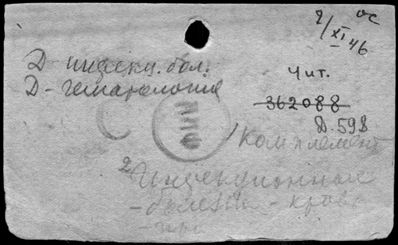 2/XI 46
Д инфекц. бол.
Д - гематология
Чит.
362088
Д. 598
1 Комплемент
2 Инфекционные
- болезни - кровь